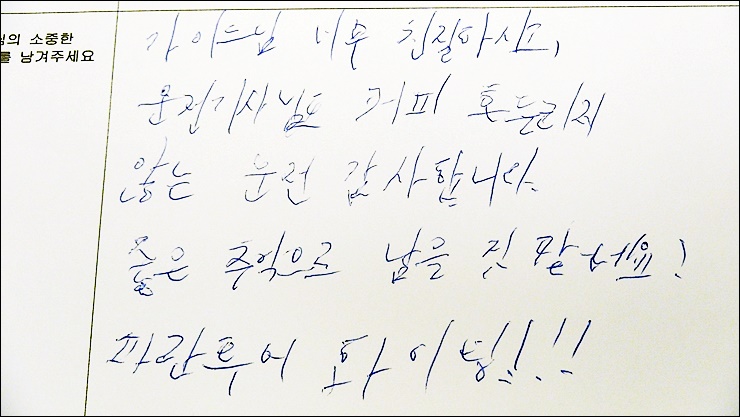 님의 소중한
를 남겨주세요
가이드님 너무 친절하시고,
운전기사님도 커피 흔들리지
않는 운전 감사합니다.
좋은 추억으로 남을 것 같네요!
파란투어 화이팅!!!